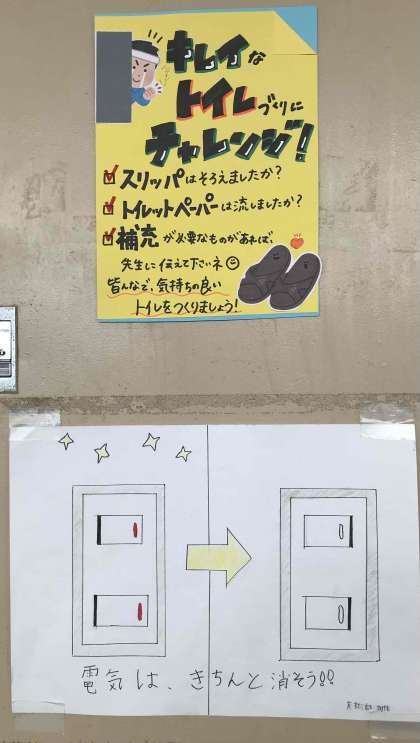 キレイな
トイレづくりに
チャレンジ!
スリッパはそろえましたか?
トイレットペーパーは流しましたか?
補充が必要なものがあれば、
先生に伝えて下さいネ☺
皆んなで、気持ちの良い
トイレをつくりましょう!
電気は、きちんと消そう!!